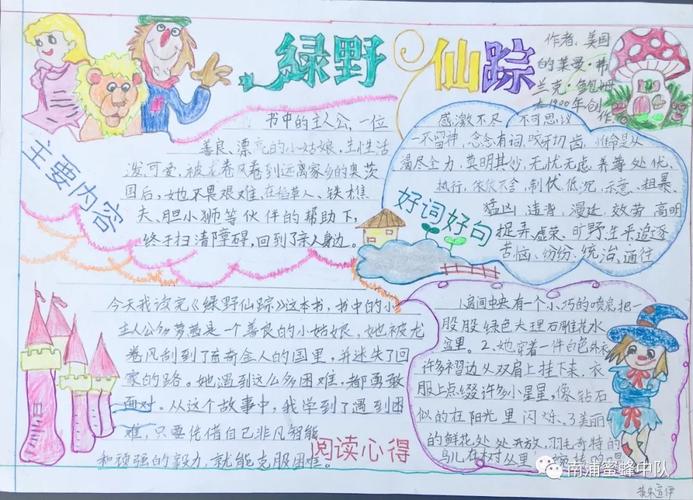 綠野仙踪
作者：美国
的莱曼·弗
兰克·鲍姆
于1900年创
作
主要内容
书中的主人公，一位
善良、漂亮的小姑娘，生性活
泼可爱，被龙卷风卷到远离家乡的奥茨
国后，她不畏艰难，在稻草人、铁樵
夫、胆小狮等伙伴的帮助下，
终于扫清障碍，回到了亲人身边。
好词好句
感激不尽 不可思议
一不留神，念念有词，咬牙切齿，惟命是从
竭尽全力，莫明其妙，无忧无虑，养尊处优
执行，依依不舍，制伏，低泥，示意，粗暴
猛凶 违背 漫延，效劳，高明
捉弄，虚荣，旷野，生平，追逐
苦恼，纷纷，统治，通往
今天我读完《绿野仙踪》这本书，书中的小
主人公多萝茜是一个善良的小姑娘，她被龙
卷风刮到了的国里，并迷失了回
家的路。她遇到这么多困难，都勇敢
面对。从这个故事中，我学到了遇到困
难，只要凭借自己非凡智能
和顽强的毅力，就能克服困难。
阅读心得
1房间中央有个小巧的喷泉把一
股股绿色大理石雕花水
盆里。2、她穿着一件白色外衣
许多褶边从双肩上挂下来，衣
服上点缀许多小星星，像钻石
似的在阳光里闪烁。3美丽
的鲜花处处开放，羽毛奇特的
鸟儿在树丛里
南浦蜜蜂中队